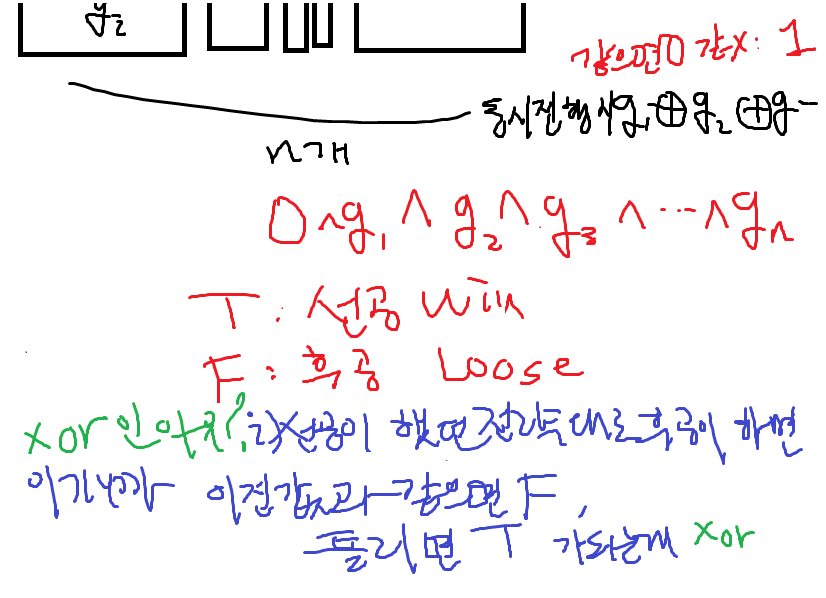 g₂
같으면0 같X: 1
동시진행시g₁⊕g₂⊕g⋯
n개
0^g₁^g₂^g₃^⋯^gₙ
T: 선공 Win
F: 후공 Loose
xor인 이유?, i)선공이 했던전략대로후공이 하면
이기니까 이전값과 같으면 F,
틀리면 T 가되는게 xor